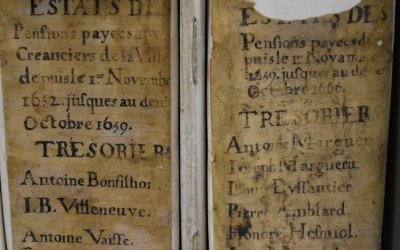 ESTATS DE
Pensions payees aux
Creanciers de la Ville
depuis le 1er Novembre
1652. jusques au der
Octobre 1659.
TRESORIER
Antoine Bonfilhon
I.B. Villeneuve.
Antoine Vaisse.
ESTATS DES
Pensions payees de
puis le 1er Novambre
1659. jusques au
Octobre 1666.
TRESORIER
Antoine Marguerit
Joseph Marguerit
Louis Eyssautier
Pierre Amblard.
Honore Hesmiol.